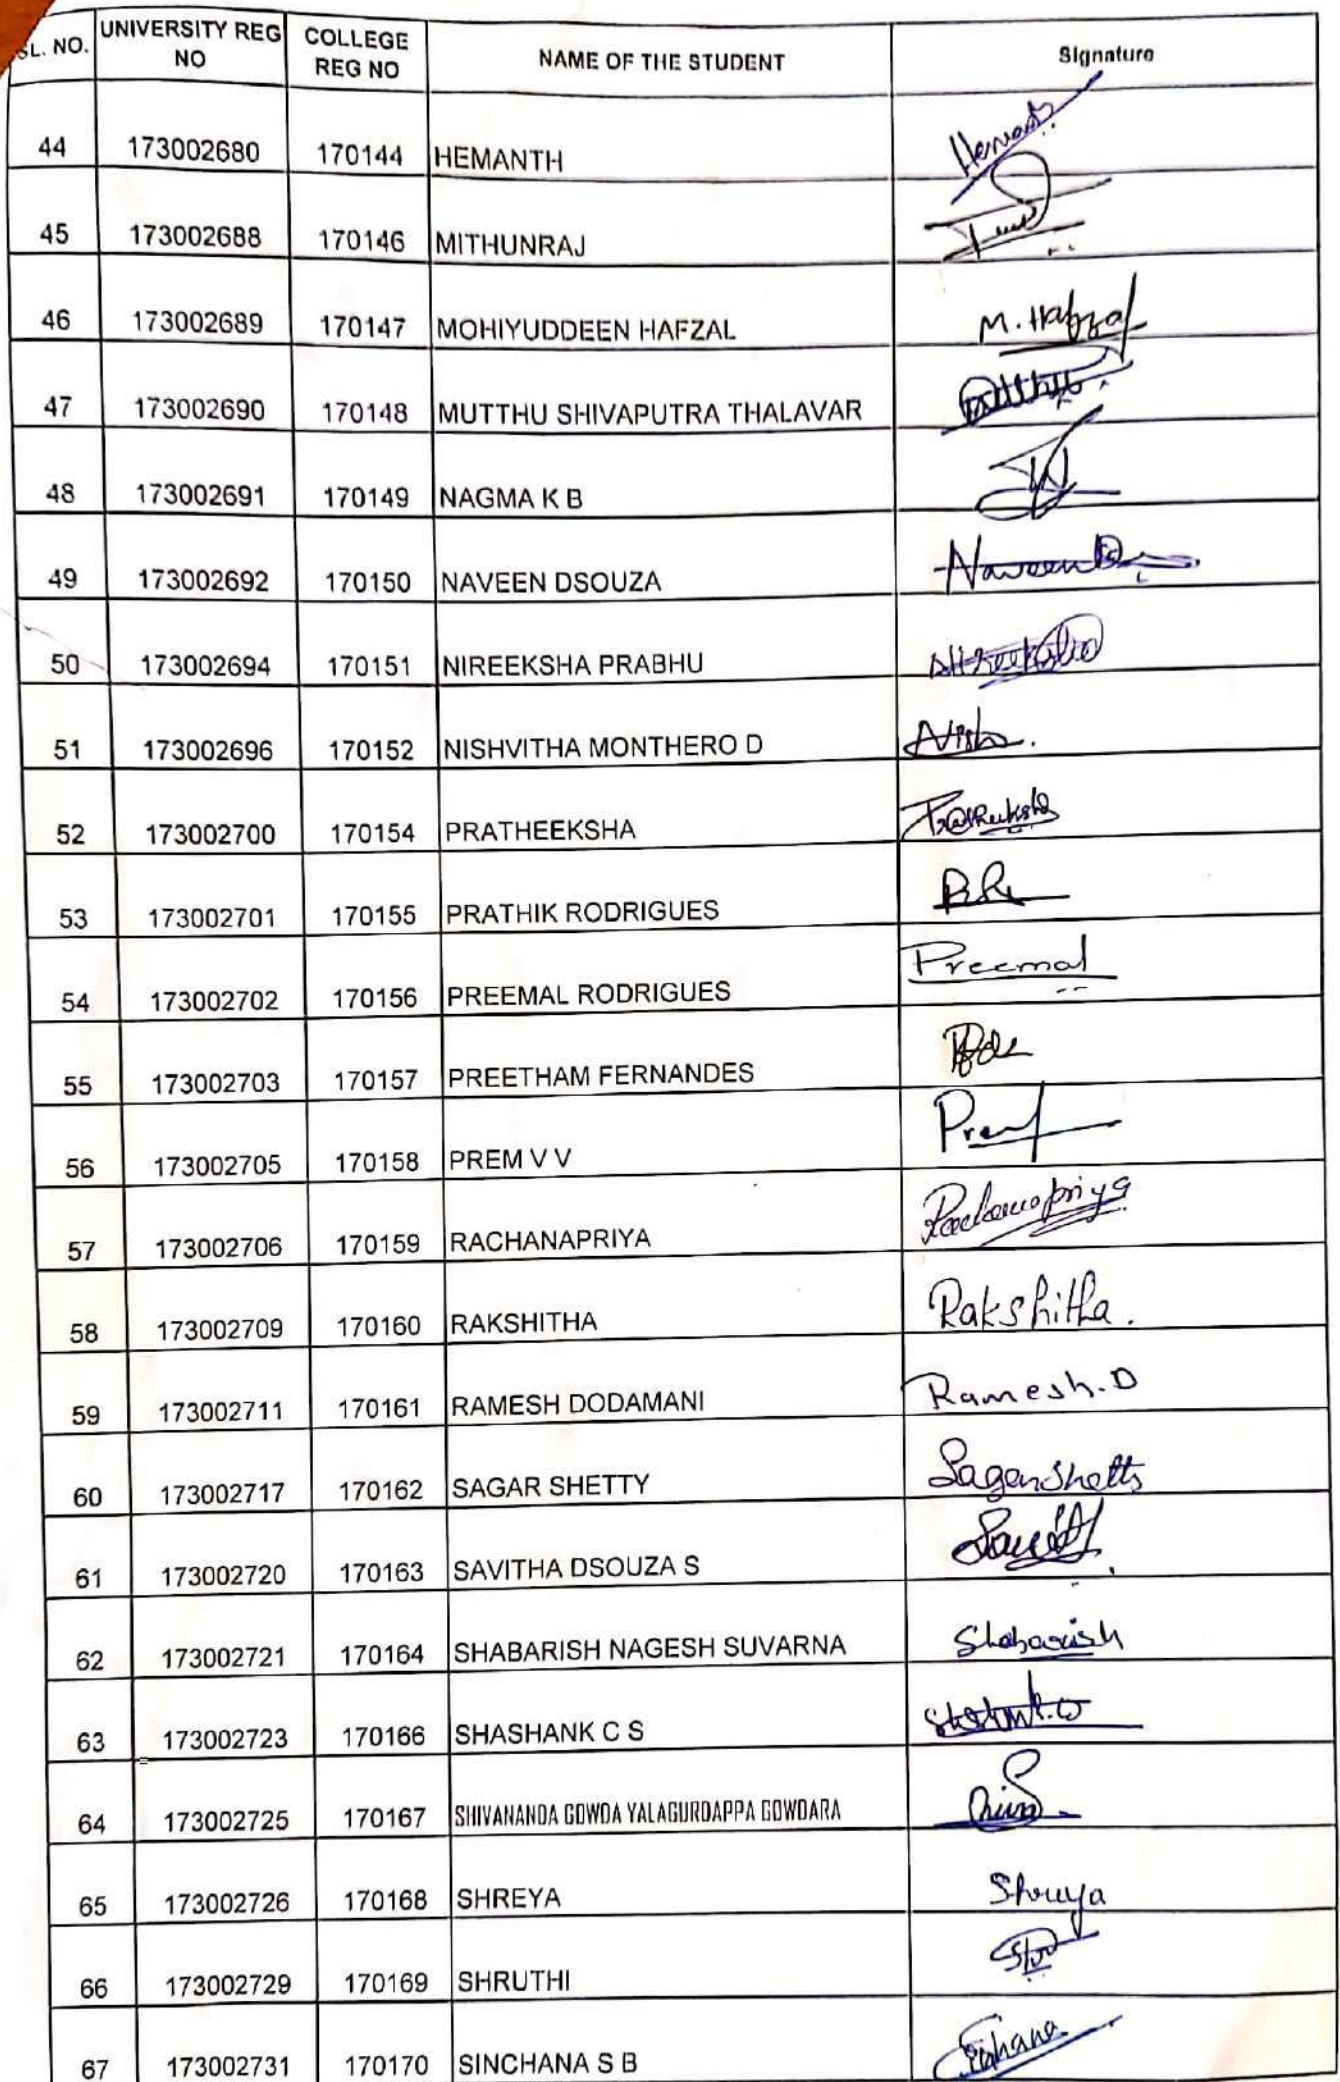 SL. NO. UNIVERSITY REG NO COLLEGE REG NO NAME OF THE STUDENT Signature
44 173002680 170144 HEMANTH
45 173002688 170146 MITHUNRAJ
46 173002689 170147 MOHIYUDDEEN HAFZAL M. Hafzal
47 173002690 170148 MUTTHU SHIVAPUTRA THALAVAR
48 173002691 170149 NAGMA K B
49 173002692 170150 NAVEEN DSOUZA
50 173002694 170151 NIREEKSHA PRABHU
51 173002696 170152 NISHVITHA MONTHERO D
52 173002700 170154 PRATHEEKSHA Pratheeksha
53 173002701 170155 PRATHIK RODRIGUES
54 173002702 170156 PREEMAL RODRIGUES Preemal
55 173002703 170157 PREETHAM FERNANDES
56 173002705 170158 PREM V V
57 173002706 170159 RACHANAPRIYA Rachanapriya
58 173002709 170160 RAKSHITHA Rakshitha.
59 173002711 170161 RAMESH DODAMANI Ramesh.D
60 173002717 170162 SAGAR SHETTY
61 173002720 170163 SAVITHA DSOUZA S
62 173002721 170164 SHABARISH NAGESH SUVARNA Shabarish
63 173002723 170166 SHASHANK C S
64 173002725 170167 SHIVANANDA GOWDA YALAGURDAPPA GOWDARA
65 173002726 170168 SHREYA Shreya
66 173002729 170169 SHRUTHI
67 173002731 170170 SINCHANA S B